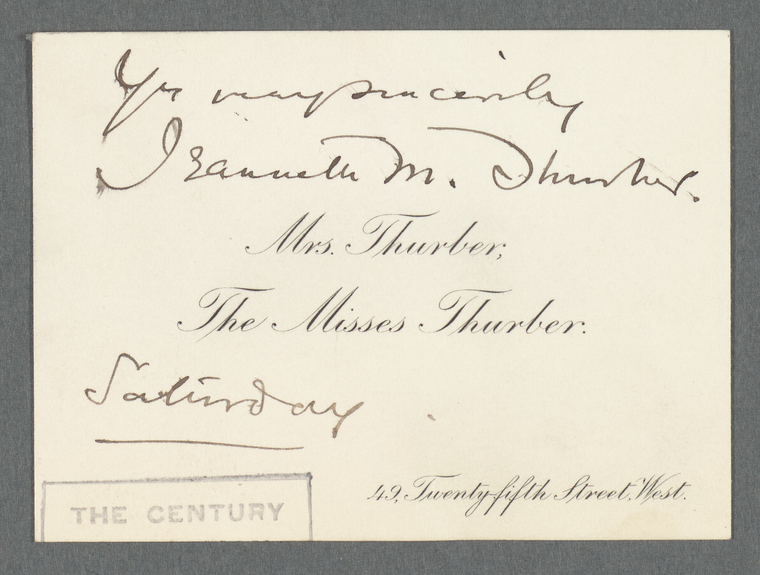 Yrs very sincerely
Jeannette M. Thurber.
Mrs. Thurber,
The Misses Thurber.
Saturday
49, Twenty-fifth Street, West.
THE CENTURY